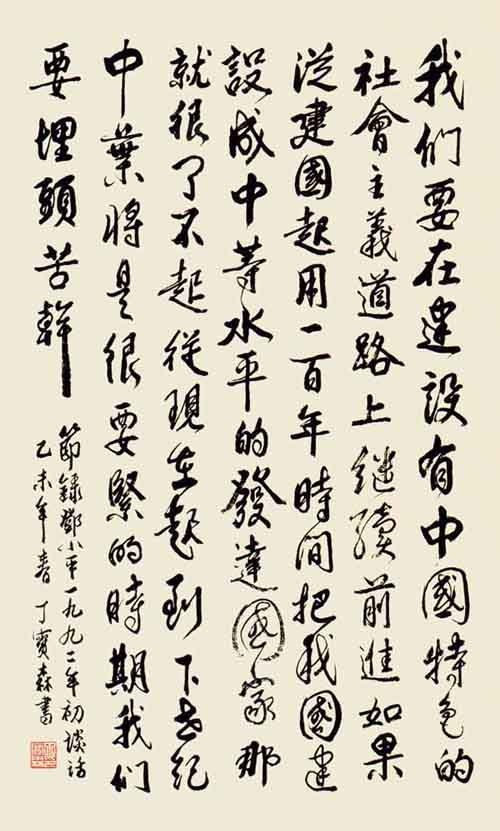 我们要在建設有中國特色的
社會主義道路上継續前進如果
從建國起用一百年時间把我國建
設成中等水平的發達國家那
就很了不起從現在起到下世紀
中葉將是很要緊的時期我们
要埋頭苦幹
節録鄧小平一九九二年初談話
乙未年春丁寶森書